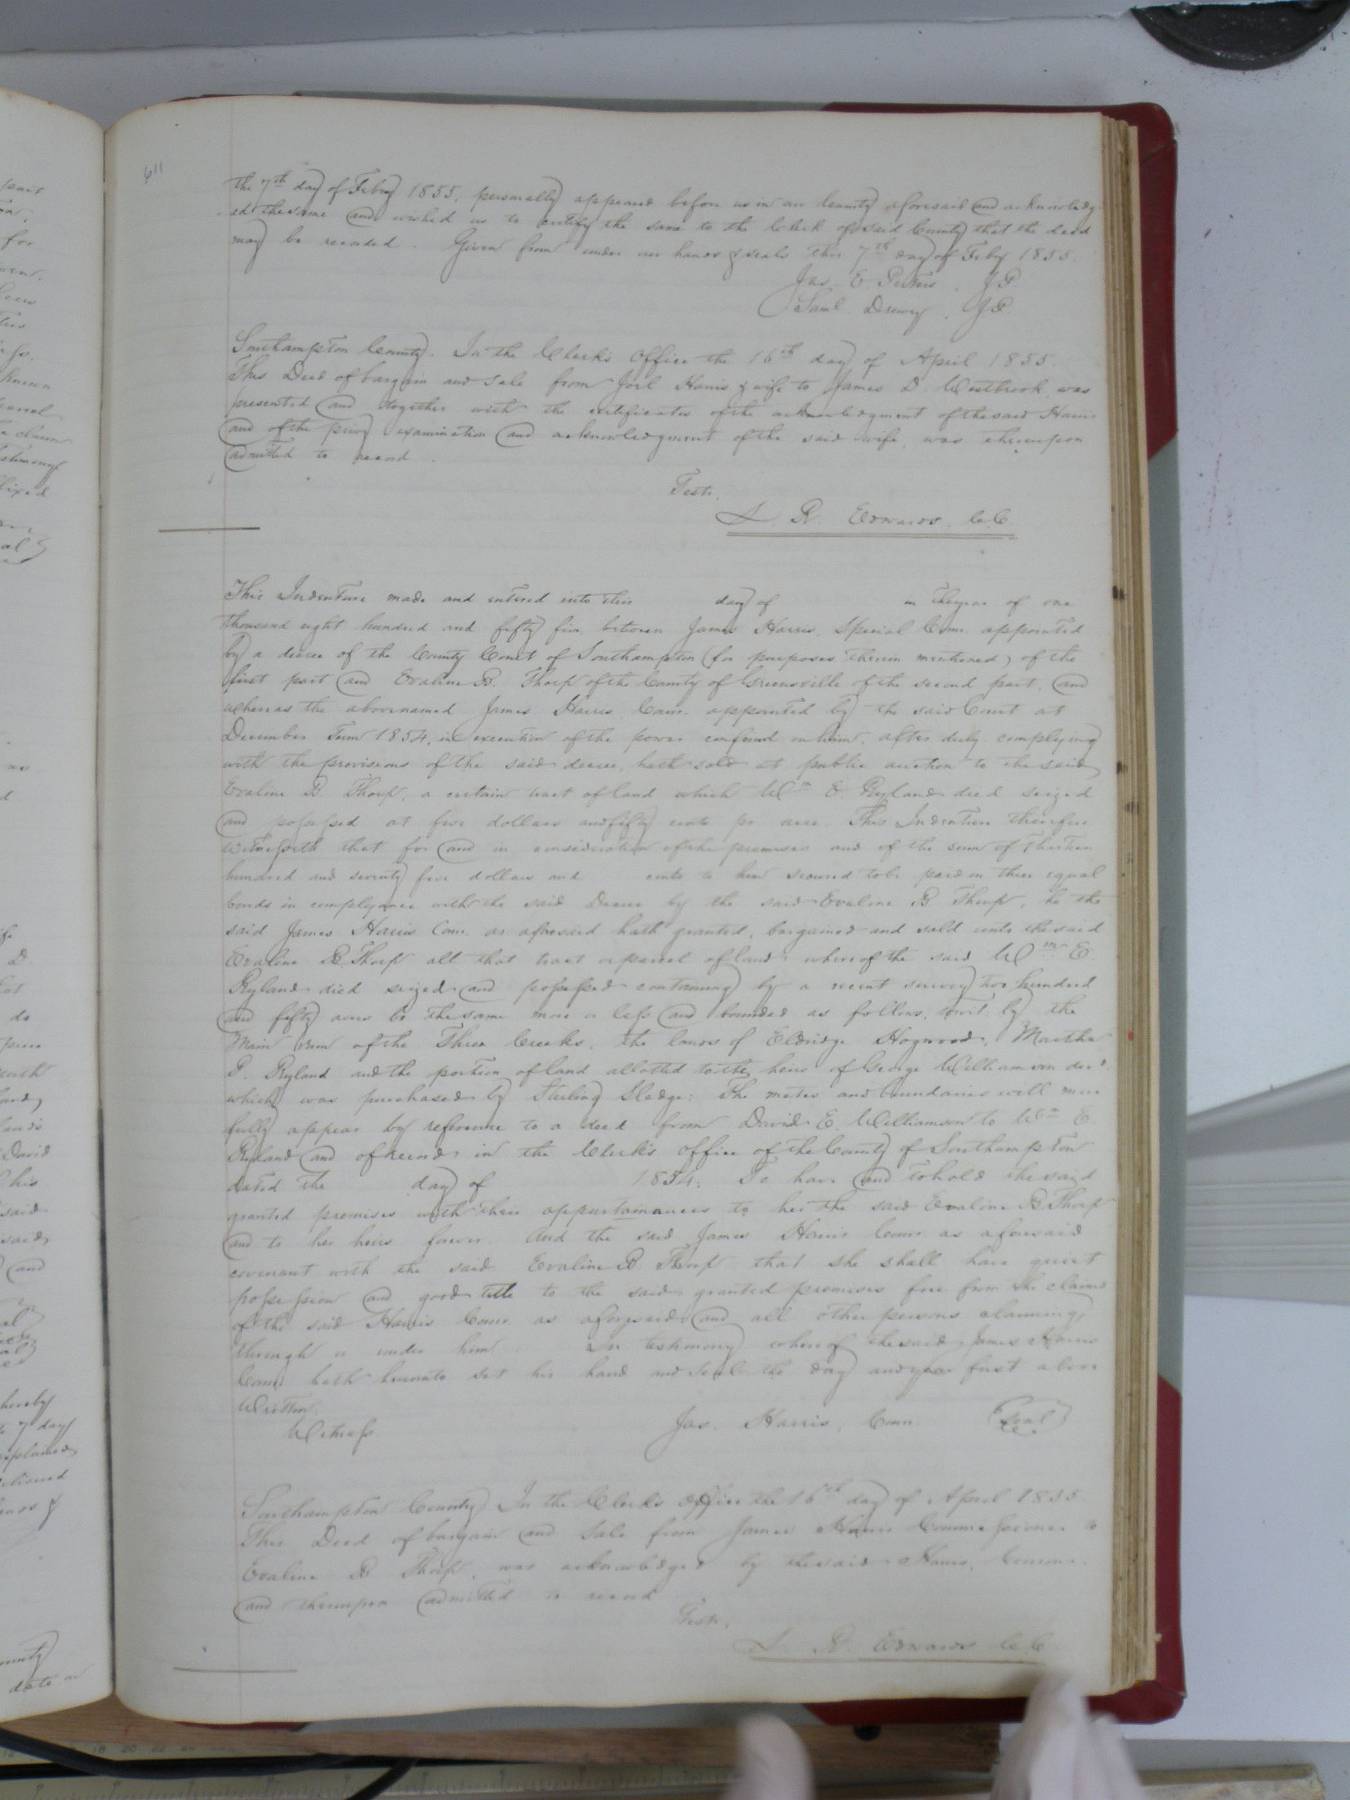 611
the 7th day of Feby 1855, personally appeared before us in our County aforesaid and acknowledg-
ed the same and wished us to certify the same to the Clerk of said County that the deed
may be recorded. Given from under our hands & seals this 7th day of Feby 1855.
Jas. E. Peters, J.P.
Saml Drewry, J.P.
Southampton County. In the Clerk's Office the 16th day of April 1855.
This Deed of bargain and sale from Joel Harris & wife to James D. Westbrook was
presented and together with the certificates of the acknowledgment of the said Harris
and of the privy examination and acknowledgment of the said wife, was thereupon
admitted to record.
Teste.
L. R. Edwards. C.C.
This Indenture made and entered into this day of in the year of one
thousand eight hundred and fifty five, between James Harris, Special Comr. appointed
by a decree of the County Court of Southampton (for purposes therein mentioned) of the
first part and Evaline B. Thorp of the County of Greensville of the second part, and
whereas the above named James Harris Comr. appointed by the said Court at
December Term 1854, in execution of the power confered on him, after duly complying
with the provisions of the said decree, hath sold at public auction to the said
Evaline B Thorp, a certain tract of land which Wm E. Ryland died seized
and possessed at five dollars and fifty cents pr acre. This Indenture therefore
Witnesseth that for and in consideration of the premises and of the sum of thirteen
hundred and seventy five dollars and cents to him secured to be paid in three equal
bonds in complyance with the said Decree by the said Evaline B Thorp, he the
said James Harris Comr. as aforesaid hath granted, bargained and sold unto the said
Evaline B. Thorp all that tract or parcel of land whereof the said Wm E.
Ryland died seized and possessed containing by a recent survey two hundred
and fifty acres be the same more or less and bounded as follows, to wit, by the
Main run of the Three Creeks, the lands of Eldridge Hogwood, Martha
P. Ryland and the portion of land allotted to the heirs of George Williamson decd.
which was purchased by Sterling Sledge: The metes and boundaries will more
fully appear by reference to a deed from David E. Williamson to Wm E.
Ryland and of record in the Clerk's Office of the County of Southampton
dated the day of 1854. To have and to hold the said
granted premises with their appurtainances to her the said Evaline B Thorp
and to her heirs forever. And the said James Harris Comr. as aforesaid
covenant with the said Evaline B Thorp that she shall have quiet
possession and good title to the said granted premises free from the claims
of the said Harris Comr. as aforesaid and all other persons claiming
through or under him. In testimony whereof the said James Harris
Comr. hath hereunto set his hand and seal the day and year first above
Written.
Witness Jas. Harris, Comr. (Seal)
Southampton County In the Clerk's office the 16th day of April 1855
This Deed of bargain and Sale from James Harris Commissioner to
Evaline B Thorp, was acknowledged by the said Harris, Commr.
and thereupon admitted to record
Teste.
L. R. Edwards C.C.